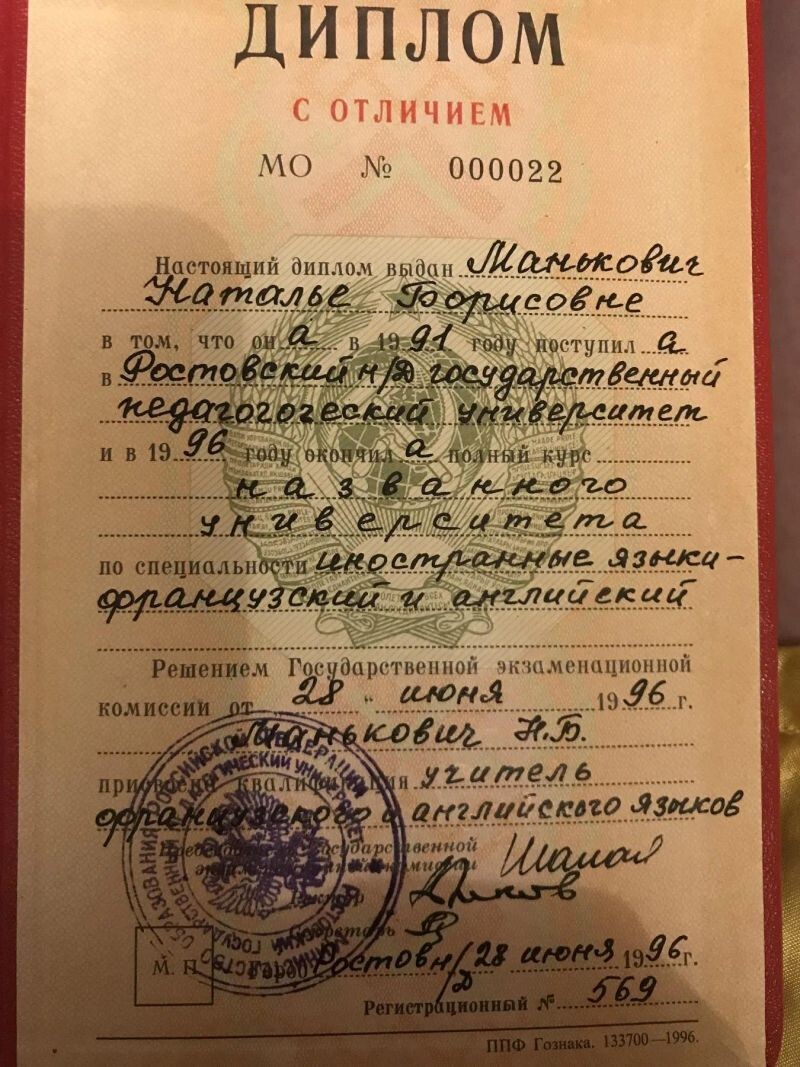 ДИПЛОМ
С ОТЛИЧИЕМ
МО № 000022
Настоящий диплом выдан Манькович
Наталье Борисовне
в том, что он а в 1991 году поступил а
в Ростовский н/Д государственный
педагогогческий университет
и в 1996 году окончил а полный курс
названного
университета
по специальности иностранные языки-
французский и английский
Решением Государственной экзаменационной
комиссии от 28 " июня 1996 г.
Манькович Н.Б.
присвоена квалификация учитель
французского и английского языков
Председатель Государственной
экзаменационной комиссии
Ректор
Секретарь
М. П. Город Ростов н/Д 28 июня 1996 г.
Регистрационный № 569
ППФ Гознака. 133700—1996.